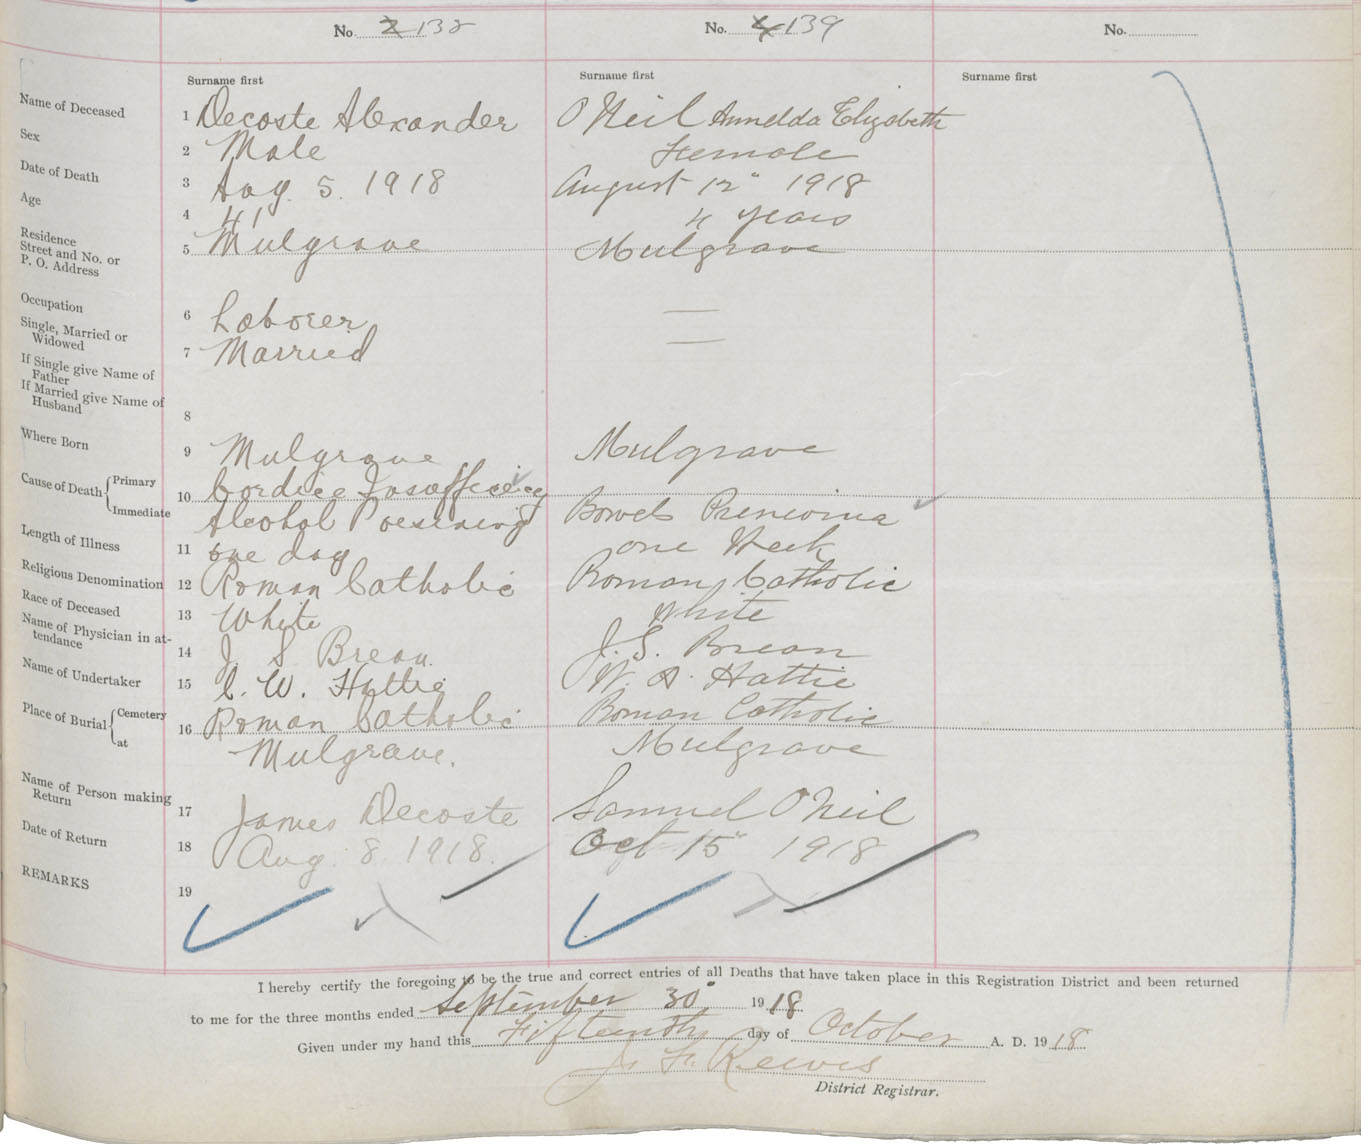 No. 2 138
No. 4 139
No.
Surname first
Surname first
Surname first
Name of Deceased 1 Decoste Alexander O'Neil Annelda Elizabeth
Sex 2 Male Female
Date of Death 3 Aug. 5. 1918 August 12" 1918
Age 4 41 4 years
Residence
Street and No. or
P. O. Address 5 Mulgrave Mulgrave
Occupation 6 Laborer —
Single, Married or
Widowed 7 Married —
If Single give Name of
Father
If Married give Name of
Husband 8
Where Born 9 Mulgrave Mulgrave
Cause of Death Primary 10 Insufficiency
Immediate Alcohol Poisining Bowels
Length of Illness 11 one day one Week
Religious Denomination 12 Roman Catholic Roman Catholic
Race of Deceased 13 White White
Name of Physician in at-
tendance 14 J. S. Brean. J. S. Brean
Name of Undertaker 15 W. Hattie Hattie
Place of Burial Cemetery 16 Roman Catholic Roman Catholic
at Mulgrave. Mulgrave
Name of Person making
Return 17 James Decoste Samuel O'Neil
Date of Return 18 Aug. 8. 1918. Oct 15" 1918
REMARKS 19
I hereby certify the foregoing to be the true and correct entries of all Deaths that have taken place in this Registration District and been returned
to me for the three months ended September 30" 1918
Given under my hand this Fifteenth day of October A. D. 1918
District Registrar.